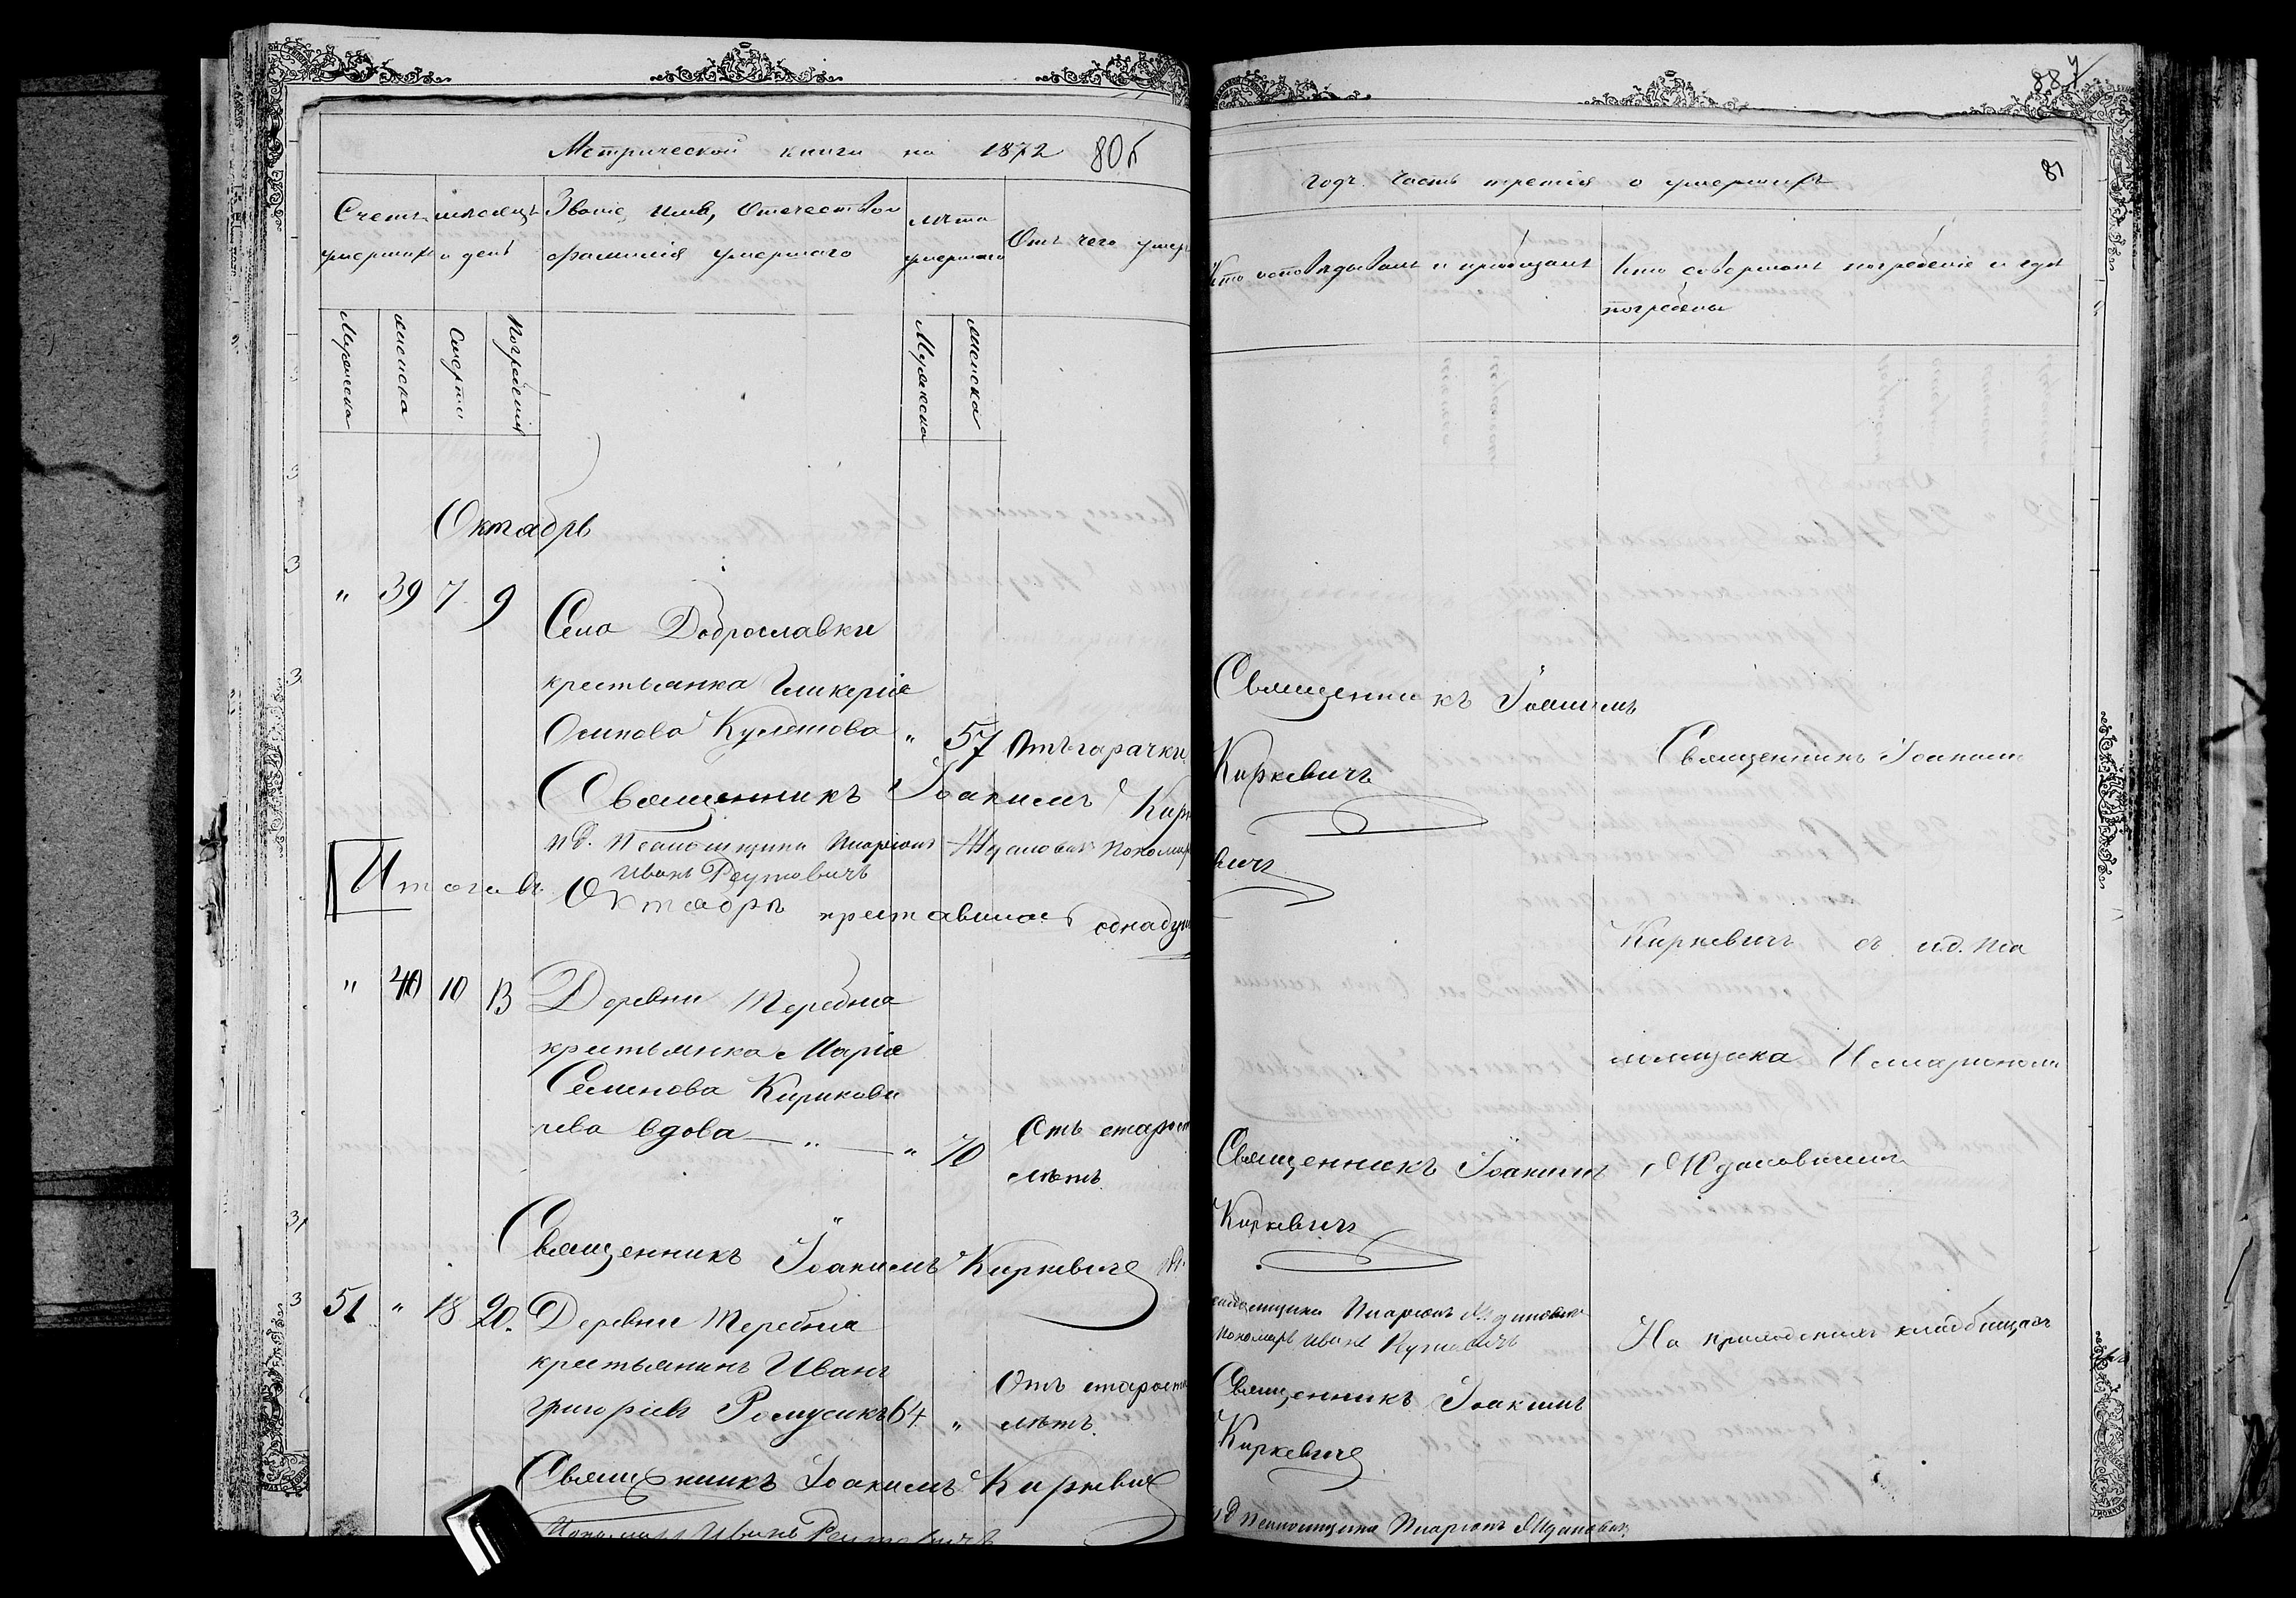 Метрической книги на 1872 80б
Счетъ умершихъ
месяцъ и день
Званіе, имя, отечество и
фамилія умершаго
лѣта
умершаго
Отъ чего умеръ
Мужеска
женска
Смерти
Погребенія
Мужеска
женска
Октябрь
" 39 7 9
Села Доброславки
крестьянка Гликерія
Осипова Кулешова " 57 Отъ гарачки
Священникъ Іоакимъ Кирке
и.д. Псаломщика Иларіонъ Ждановичъ Пономарь
Иванъ Реутовичъ
Итого въ Октябрѣ преставилась одна душ
" 40 10 13 Деревни Теребня
крестьянка Марія
Семенова Кирикови
чева вдова — " — " 70 Отъ старости
лѣтъ.
Священникъ Іоакимъ Киркевичъ
51 " 18 20. Деревни Теребня
крестьянинъ Иванъ
Григоріевъ Ромусикъ 64 " Отъ старости
лѣтъ.
Священникъ Іоакимъ Киркевичъ
Пономарь Иванъ Реутовичъ
887
81
годъ. Часть третія о умершихъ
Кто исповѣдывалъ и пріобщалъ
Кто совершалъ погребеніе и гдѣ
погребены
Священникъ Іоакимъ
Киркевичъ
вичъ
Священникъ Іоакимъ
Киркевичъ съ и.д. Пса
ломщика Илларіономъ
Священникъ Іоакимъ Ждановичемъ
Киркевичъ
псаломщика Иларіонъ Ждановичъ
Пономарь Иванъ
На приходскомъ кладбищахъ
Священникъ Іоакимъ
Киркевичъ
и д Псаломщика Иларіонъ Ждановичъ